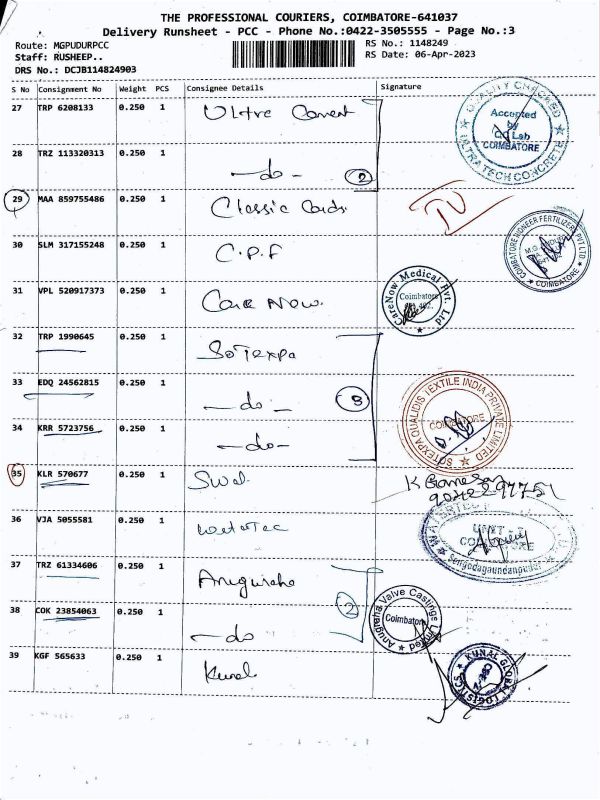 THE PROFESSIONAL COURIERS, COIMBATORE-641037
Delivery Runsheet - PCC - Phone No.:0422-3505555 - Page No.:3
Route: MGPUDURPCC
RS No.: 1148249
Staff: RUSHEEP..
RS Date: 06-Apr-2023
DRS No.: DCJB114824903
S No Consignment No Weight PCS Consignee Details Signature
27 TRP 6208133 0.250 1
QUALITY CHECKED
Accepted
by
QC Lab
COIMBATORE
ULTRATECH CONCRETE
28 TRZ 113320313 0.250 1 -do- 2
29 MAA 859755486 0.250 1 Classic Cards
30 SLM 317155248 0.250 1 C.P.F
COIMBATORE PIONEER FERTILIZERS PVT LTD
COIMBATORE
31 VPL 520917373 0.250 1 Care Now.
CareNow Medical Pvt. Ltd
Coimbatore
32 TRP 1990645 0.250 1 Sotexpa
33 EDQ 24562815 0.250 1 -do- 3
SOTEXPA QUALIDIS TEXTILE INDIA PRIVATE LIMITED
COIMBATORE
34 KRR 5723756 0.250 1 -do-
35 KLR 570677 0.250 1
K Ganesan
36 VJA 5055581 0.250 1 Watertec
UNIT - 2
37 TRZ 61334606 0.250 1
38 COK 23854063 0.250 1 -do 2
Anugraha Valve Castings Limited
Coimbatore
39 KGF 565633 0.250 1 Kunal
KUNAL GLOBAL LOGISTICS